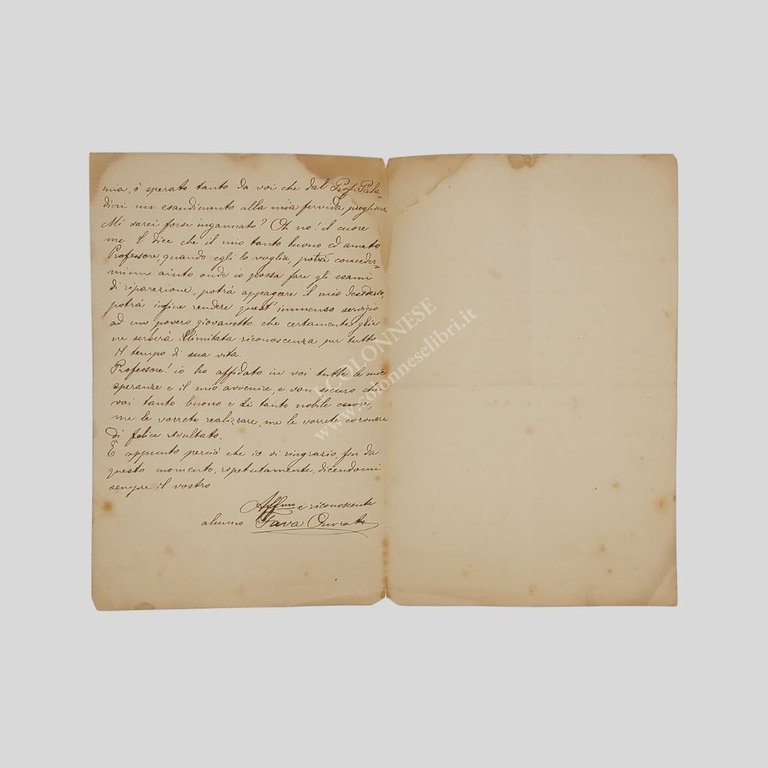 ma, ò sperato tanto da voi che dal Prof. Pala-
dini un esaudimento alla mia fervida preghiera
Mi sarei forse ingannato? Oh no! il cuore
me l dice che il mio tanto buono ed amato
Professore, quando egli lo voglia, potrà conceder-
mi aiuto onde io possa fare gli esami
di riparazione, potrà appagare il mio desiderio,
potrà infine rendere quest' immenso servigio
ad un povero giovanetto che certamente glie
ne serberà illimitata riconoscenza per tutto
il tempo di sua vita.
Professore! io ho affidato in voi tutte le mie
speranze e il mio avvenire, e son sicuro che
voi tanto buono e di tanto nobile cuore,
me le vorrete realizzare, me le vorrete coronare
di felice risultato.
È appunto perciò che io vi ringrazio fin da
questo momento, ripetutamente, dicendomi
sempre il vostro
Affmo e riconoscente
alunno Fava Onorato
COLONNESE
www.colonneselibri.it